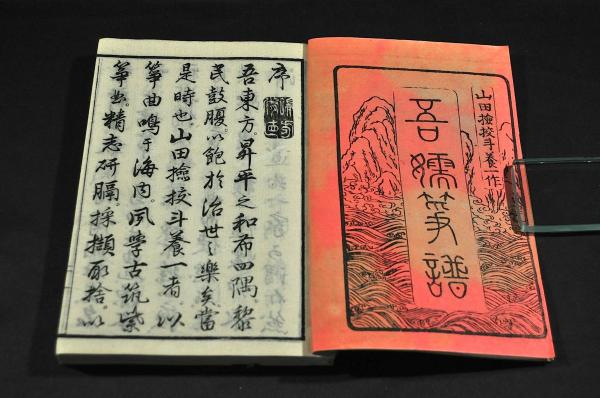 山田撿挍斗養一作
吾嬬箏譜
序
吾東方。昇平之和布四隅黎
民鼓腹以飽於治世之樂矣當
是時也。山田撿挍斗養一者以
箏曲鳴于海内。夙學古筑紫
箏曲。精志研。採擷取捨。以